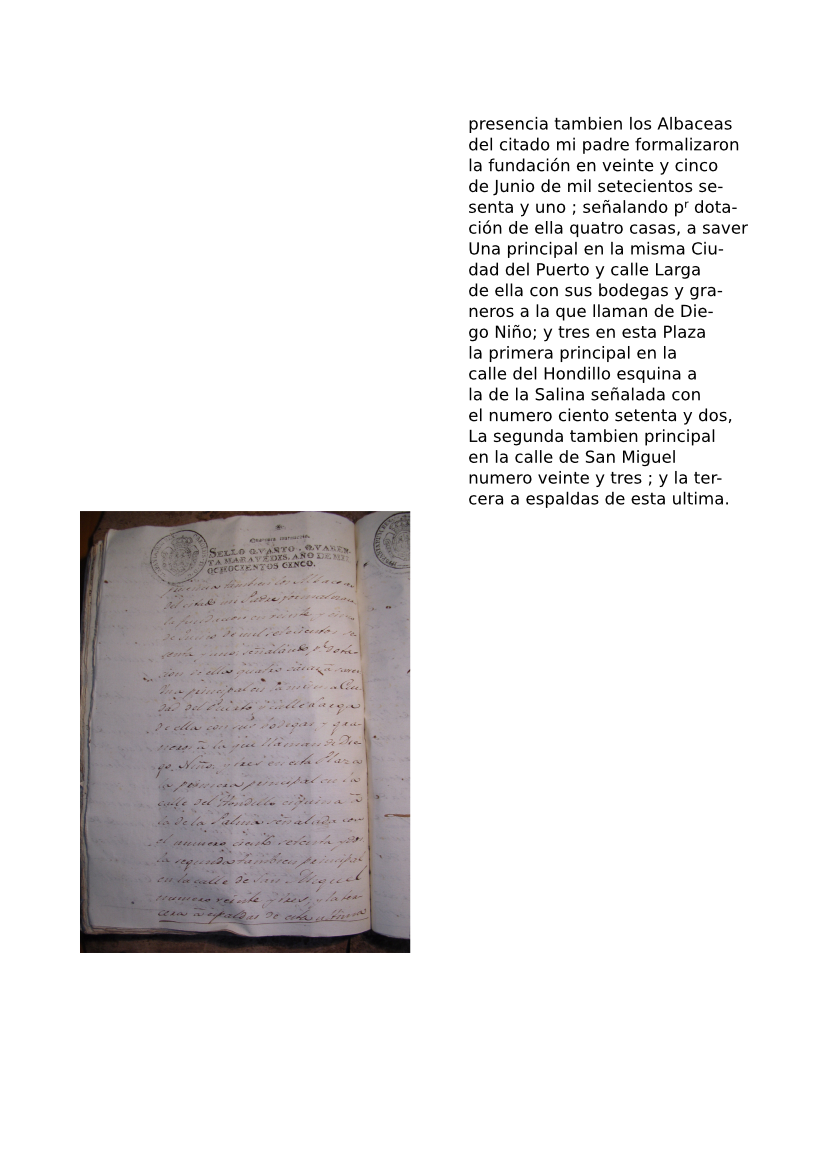 presencia tambien los Albaceas
del citado mi padre formalizaron
la fundación en veinte y cinco
de Junio de mil setecientos se-
senta y uno ; señalando pʳ dota-
ción de ella quatro casas, a saver
Una principal en la misma Ciu-
dad del Puerto y calle Larga
de ella con sus bodegas y gra-
neros a la que llaman de Die-
go Niño; y tres en esta Plaza
la primera principal en la
calle del Hondillo esquina a
la de la Salina señalada con
el numero ciento setenta y dos,
La segunda tambien principal
en la calle de San Miguel
numero veinte y tres ; y la ter-
cera a espaldas de esta ultima.
SELLO QVARTO, QVAREN-
TA MARAVEDIS, AÑO DE MIL
OCHOCIENTOS CINCO.
presencia tambien los Albaceas
del citado mi Padre formalizaron
la fundacion en veinte y cinco
de Junio de mil setecientos se-
senta y uno señalando pʳ dota-
cion de ella quatro casas, a saver
Una principal en la misma Ciu-
dad del Puerto y calle Larga
de ella con sus bodegas y gra-
neros à la que llaman de Die-
go Niño; y tres en esta Plaza
la primera principal en la
calle del Hondillo esquina à
la de la Palma señalada con
el numero ciento setenta y dos
la segunda tambien principal
en la calle de San Miguel
numero veinte y tres, y la ter-
cera à espaldas de esta ultima